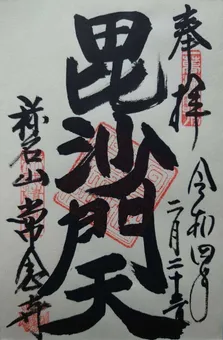 奉拝
令和四年
二月二十二日
毘沙門天
常念寺